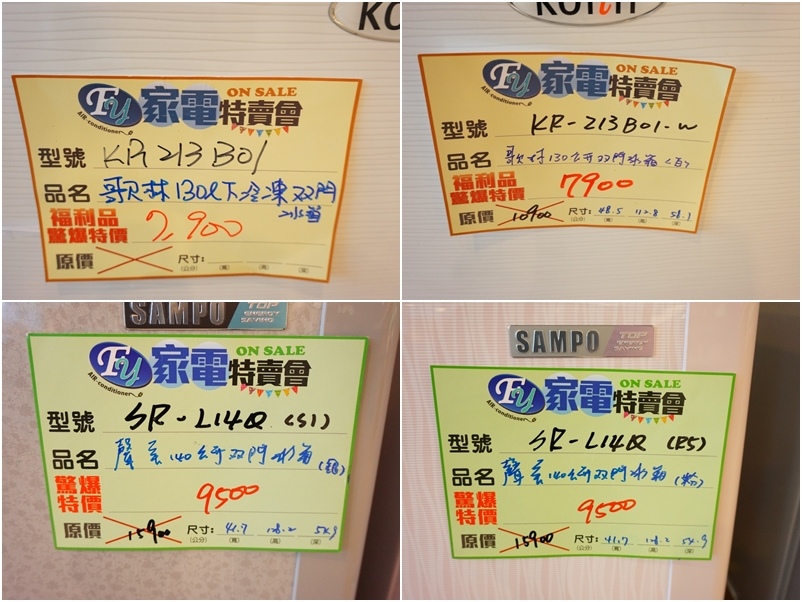 KO
FY 家電特賣會 ON SALE
AIR-conditioner
型號 KR 213B01
品名 歌林130L下冷凍双門
冰箱
福利品
驚爆特價 7,900
原價 尺寸:
(公分) (寬) (高) (深)
KOlin
FY 家電特賣會 ON SALE
AIR-conditioner
型號 KR-213B01-W
品名 歌林130公升双門冰箱(白)
福利品
驚爆特價 7900
原價 10900 尺寸: 48.5 112.8 58.1
(公分) (寬) (高) (深)
SAMPO TOP ENERGY SAVING
FY 家電特賣會 ON SALE
AIR-conditioner
型號 SR-L14Q (S1)
品名 聲寶140公升双門冰箱(銀)
驚爆
特價 9500
原價 15900 尺寸: 41.7 54.9
(公分) (寬) (高) (深)
SAMPO TOP ENERGY SAVING
FY 家電特賣會 ON SALE
AIR-conditioner
型號 SR-L14Q (R5)
品名 聲寶140公升双門冰箱(粉)
驚爆
特價 9500
原價 15900 尺寸: 41.7 54.9
(公分) (寬) (高) (深)